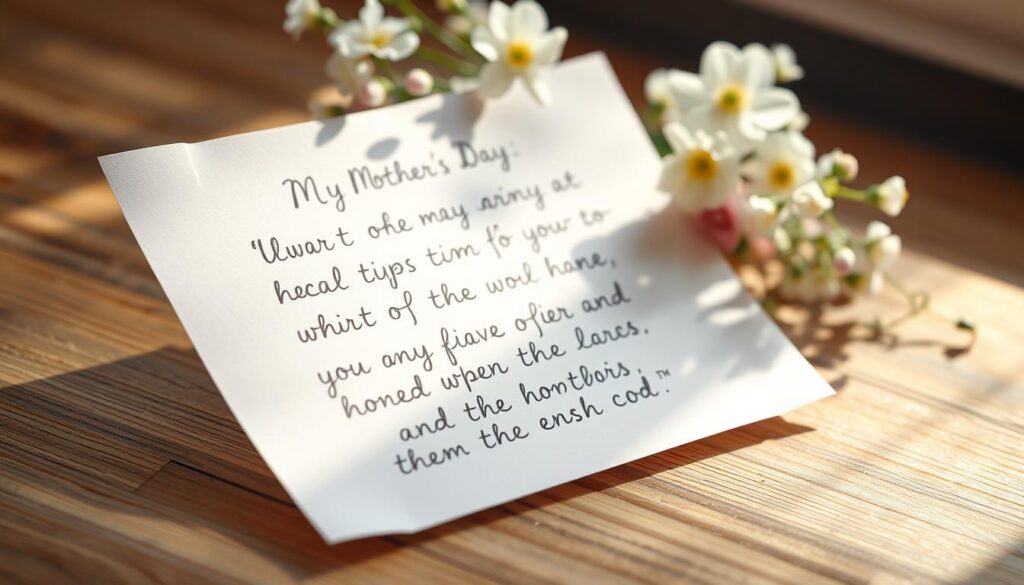 My Mother's Day:
"Uwar't ohe may ariny at
hecal tijps tim fo you to
whirt of the wool hane,
you any fiave ofier and
honed wpen the larcs.
and the hontbois,
them the ensh cod.™